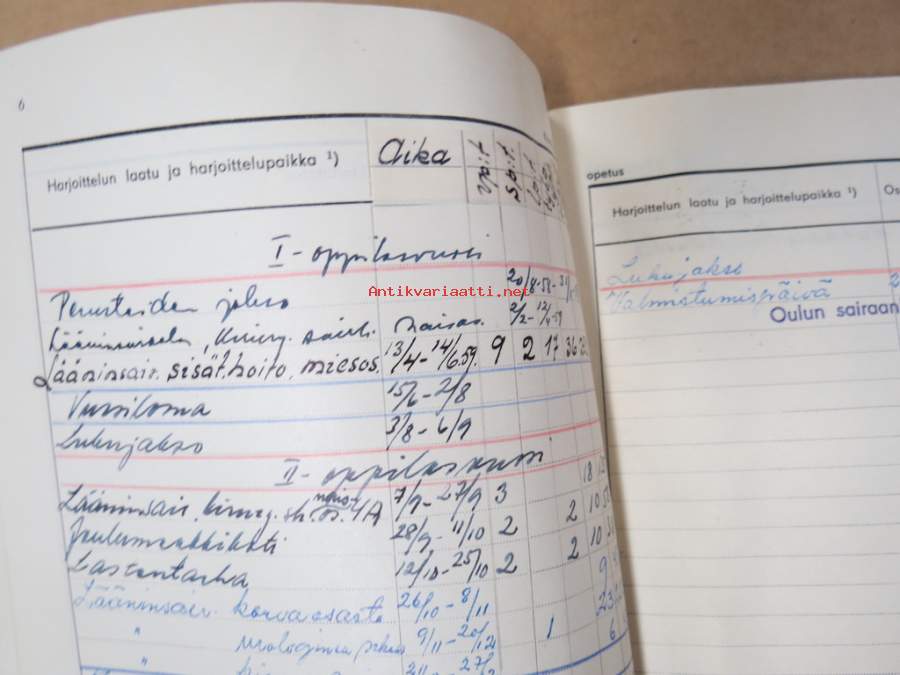 6
Harjoittelun laatu ja harjoittelupaikka ¹)
Aika
I - oppilasvuosi
Perusteiden jakso 20/8-58-31/
Lääninsairaala, kirurg. sairh. naisos. 2/2 - 12/4-59
Lääninsair. sisät.hoito, miesos. 13/4 - 14/6.59. 9 2 17 36
Vuosiloma 15/6 - 2/8
Lukujakso 3/8 - 6/9
II - oppilasvuosi
18
Lääninsair. kirurg. sh. nais os. 4A 7/9 - 27/9 3
Joulumerkkikoti 28/9 - 11/10 2 2 10
Lastentarha 12/10 - 25/10 2 2 10
9
Lääninsair. korvaosasto 26/10 - 8/11 23
" urologinen 9/11 - 20/12 1 6
"
opetus
Harjoittelun laatu ja harjoittelupaikka ¹)
Os
Lukujakso
Valmistumispäivä 2
Oulun sairaan
Antikvariaatti.net